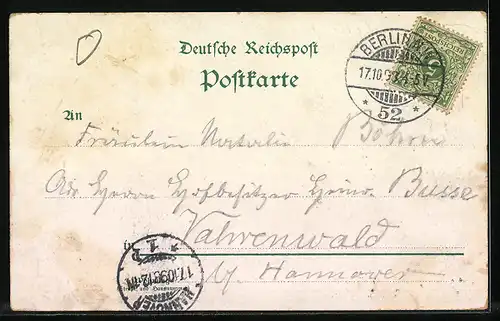 Deutsche Reichspost
Postkarte
BERLIN
17.10.98
52
An
Fräulein Natalie Böhm
Adr. Herrn Hofbesitzer Heinr. Busse
Vahrenwald
b/ Hannover
HANNOVER
17.10.98
1